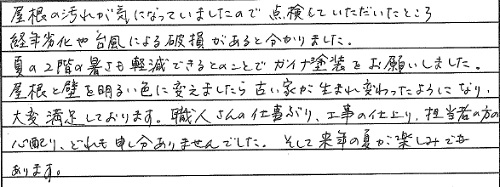 屋根の汚れが気になっていましたので点検していただいたところ
経年劣化や台風による破損があると分かりました。
夏の2階の暑さも軽減できるとのことでガイナ塗装をお願いしました。
屋根と壁を明るい色に変えましたら古い家が生まれ変わったようになり、
大変満足しております。職人さんの仕事ぶり、工事の仕上り、担当者の方の
心配り、どれも申し分ありませんでした。そして来年の夏が楽しみでも
あります。